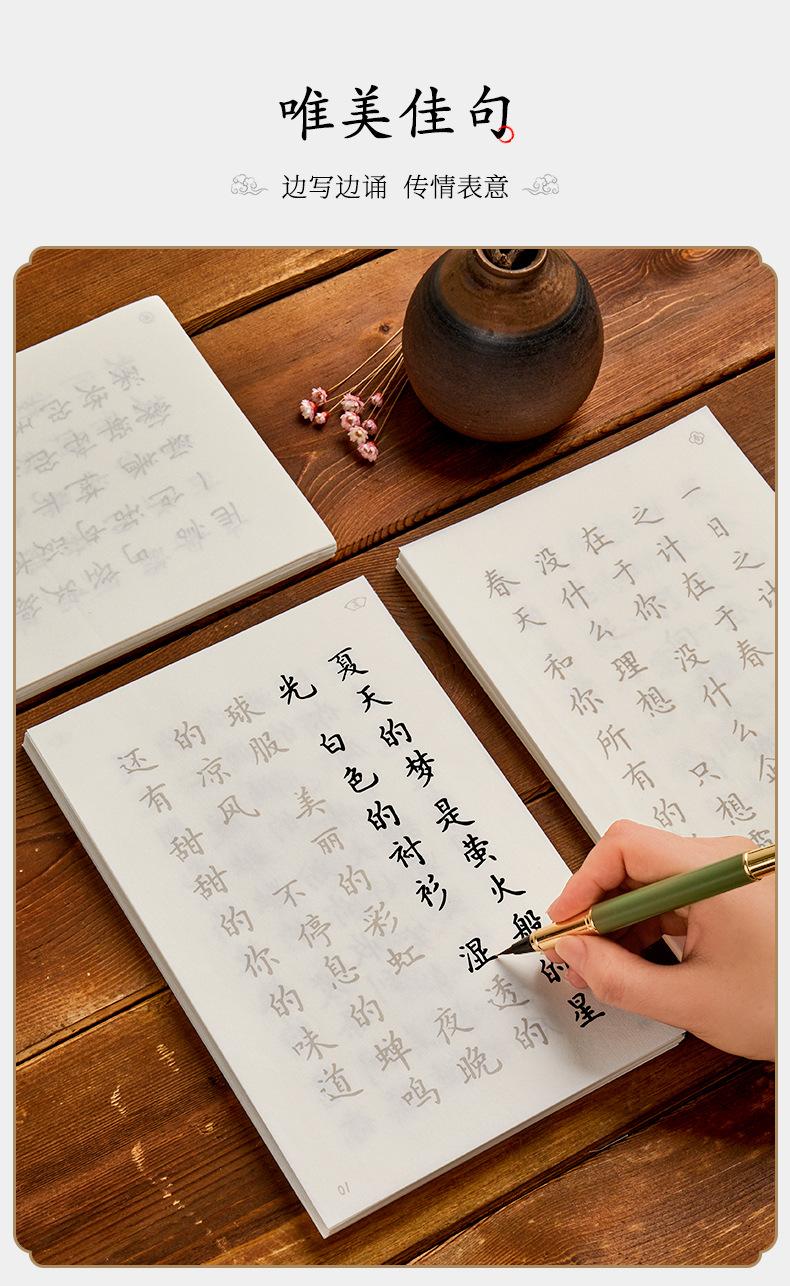 唯美佳句
边写边诵 传情表意
夏天的梦是萤火般的星
光 白色的衬衫 湿透的
球服 美丽的彩虹 夜晚
的凉风 不停息的蝉鸣
还有甜甜的你的味道
01
一日之计
之计在于春
在于你 没什么企
没什么理想 只想
春天和你所有的